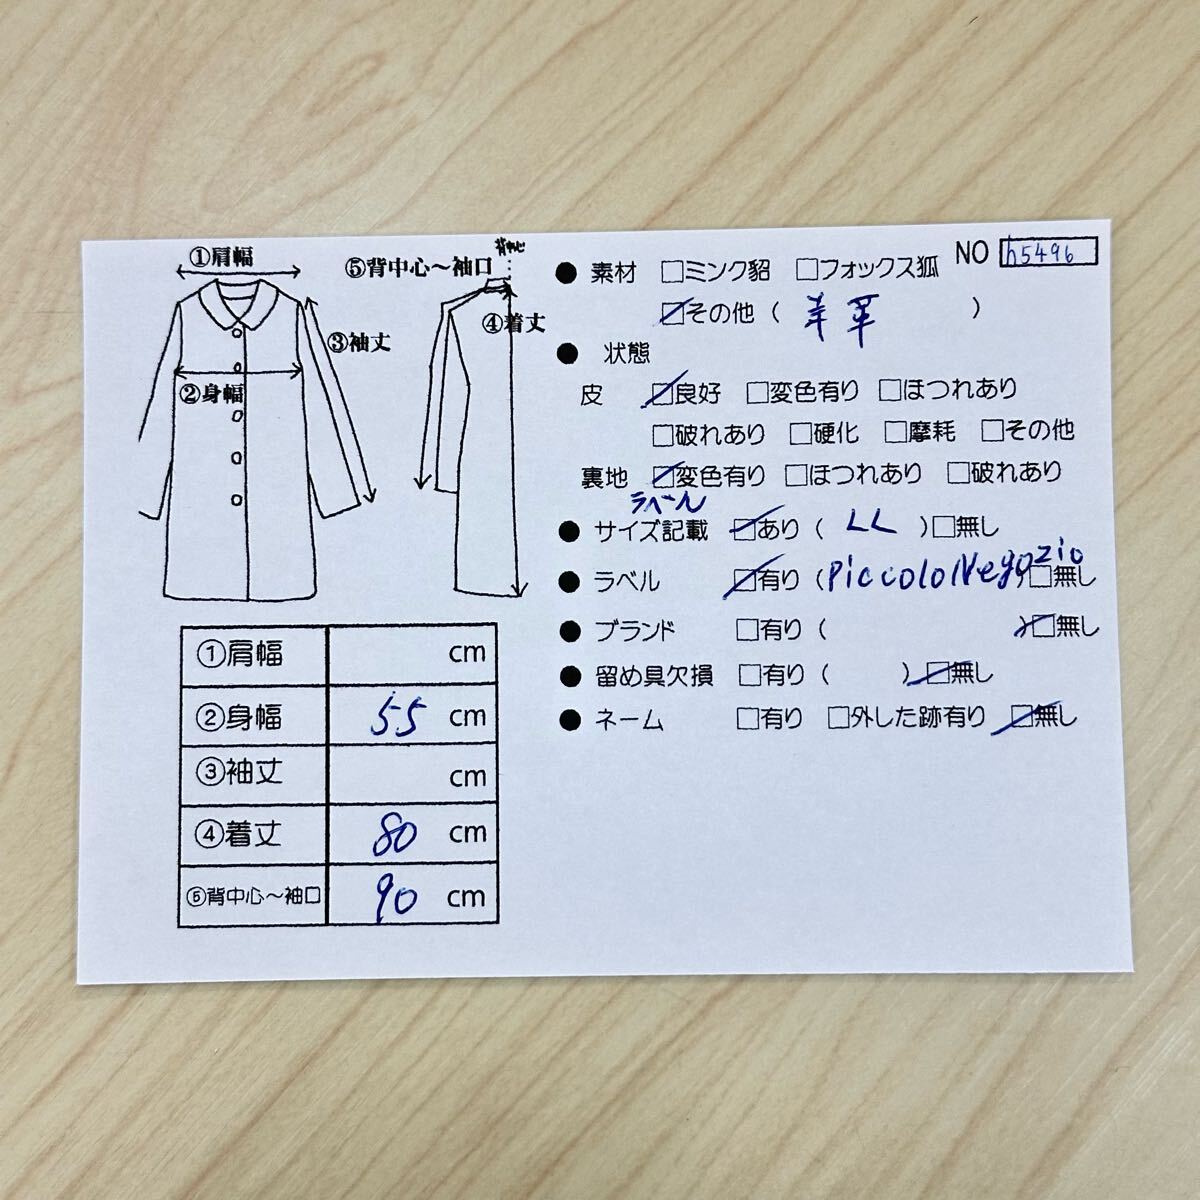 ①肩幅
⑤背中心～袖口
背中心
③袖丈
④着丈
②身幅
NO h5496
● 素材 □ミンク貂 □フォックス狐
☑その他 ( 羊革 )
● 状態
皮 ☑良好 □変色有り □ほつれあり
□破れあり □硬化 □摩耗 □その他
裏地 ☑変色有り □ほつれあり □破れあり
ラベル
● サイズ記載 ☑あり ( LL ) □無し
● ラベル ☑有り (Piccolo Negozio) □無し
● ブランド □有り ( ) ☑無し
● 留め具欠損 □有り ( ) ☑無し
● ネーム □有り □外した跡有り ☑無し
①肩幅 cm
②身幅 55 cm
③袖丈 cm
④着丈 80 cm
⑤背中心～袖口 90 cm